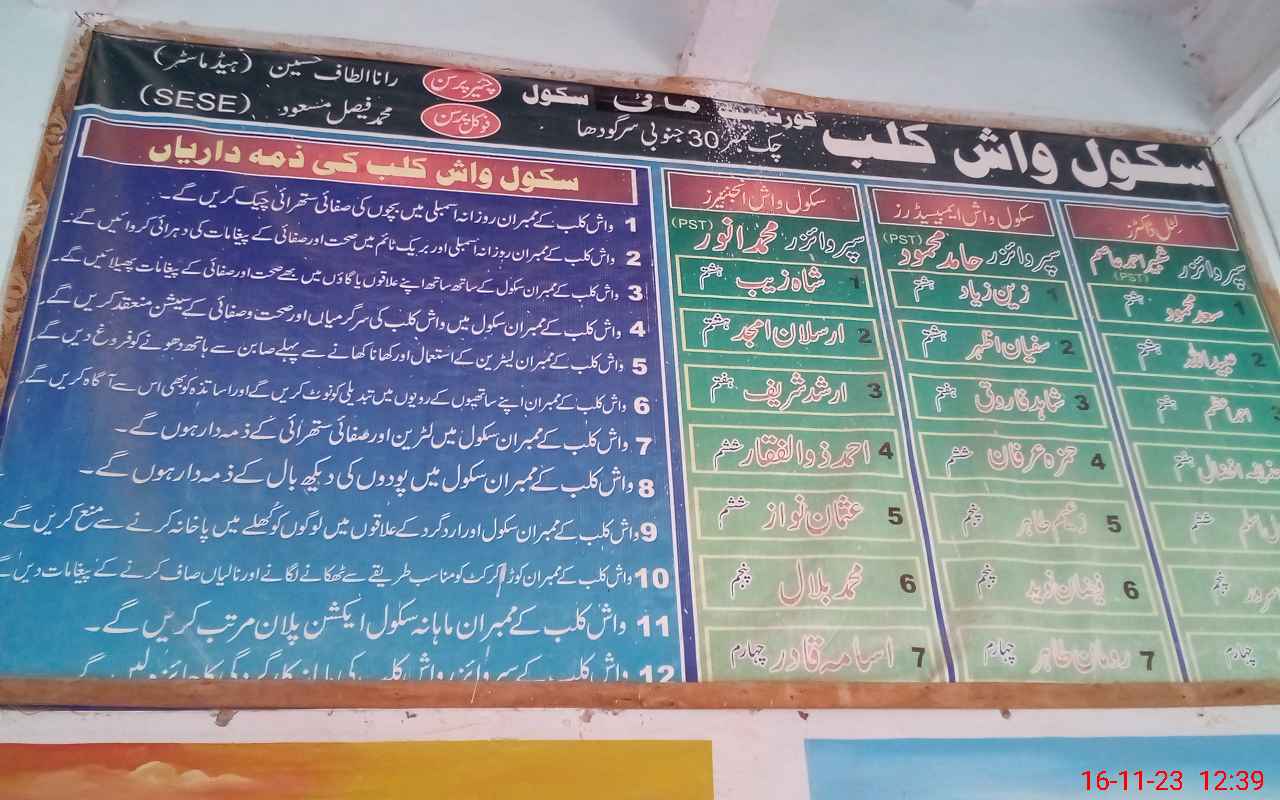 سکول واش کلب
گورنمنٹ ہائی سکول
چک نمبر 30 جنوبی سرگودھا
چیئر پرسن رانا الطاف حسین (ہیڈ ماسٹر)
فوکل پرسن محمد فیصل مسعود (SESE)
لٹل ڈاکٹرز
سپروائزر شبیر احمد عاصم (PST)
1 سعد محمود ہشتم
2 عبید اللہ ہشتم
ہشتم
ہفتم
ششم
پنجم
چہارم
سکول واش ایمبیسڈرز
سپروائزر حامد محمود (PST)
1 زین زیاد ہشتم
2 سفیان اظہر ہشتم
3 شاہد فاروق ہشتم
4 حمزہ عرفان ششم
5 وسیم طاہر پنجم
6 فیضان نوید پنجم
7 رومان طاہر چہارم
سکول واش انجینئرز
سپروائزر محمد انور (PST)
1 شاہ زیب ہشتم
2 ارسلان امجد ہشتم
3 ارشد شریف ہفتم
4 احمد ذوالفقار ششم
5 عثمان نواز ششم
6 محمد بلال پنجم
7 اسامہ قادر چہارم
سکول واش کلب کی ذمہ داریاں
1 واش کلب کے ممبران روزانہ اسمبلی میں بچوں کی صفائی ستھرائی چیک کریں گے۔
2 واش کلب کے ممبران روزانہ اسمبلی اور بریک ٹائم میں صحت اور صفائی کے پیغامات کی دہرائی کروائیں گے۔
3 واش کلب کے ممبران سکول کے ساتھ ساتھ اپنے علاقوں یا گاؤں میں بھی صحت اور صفائی کے پیغامات پھیلائیں گے۔
4 واش کلب کے ممبران سکول میں واش کلب کی سرگرمیاں اور صحت و صفائی کے سیشن منعقد کریں گے۔
5 واش کلب کے ممبران لیٹرین کے استعمال اور کھانا کھانے سے پہلے صابن سے ہاتھ دھونے کو فروغ دیں گے۔
6 واش کلب کے ممبران اپنے ساتھیوں کے رویوں میں تبدیلی کو نوٹ کریں گے اور اساتذہ کو بھی اس سے آگاہ کریں گے۔
7 واش کلب کے ممبران سکول میں لٹرین اور صفائی ستھرائی کے ذمہ دار ہوں گے۔
8 واش کلب کے ممبران سکول میں پودوں کی دیکھ بال کے ذمہ دار ہوں گے۔
9 واش کلب کے ممبران سکول اور ارد گرد کے علاقوں میں لوگوں کو کُھلے میں پاخانہ کرنے سے منع کریں گے۔
10 واش کلب کے ممبران کوڑا کرکٹ کو مناسب طریقے سے ٹھکانے لگانے اور نالیاں صاف کرنے کے پیغامات دیں گے
11 واش کلب کے ممبران ماہانہ سکول ایکشن پلان مرتب کریں گے۔
12 واش کلب کے سپروائزر واش کلب کی کارکردگی کا جائزہ لیں گے
16-11-23 12:39